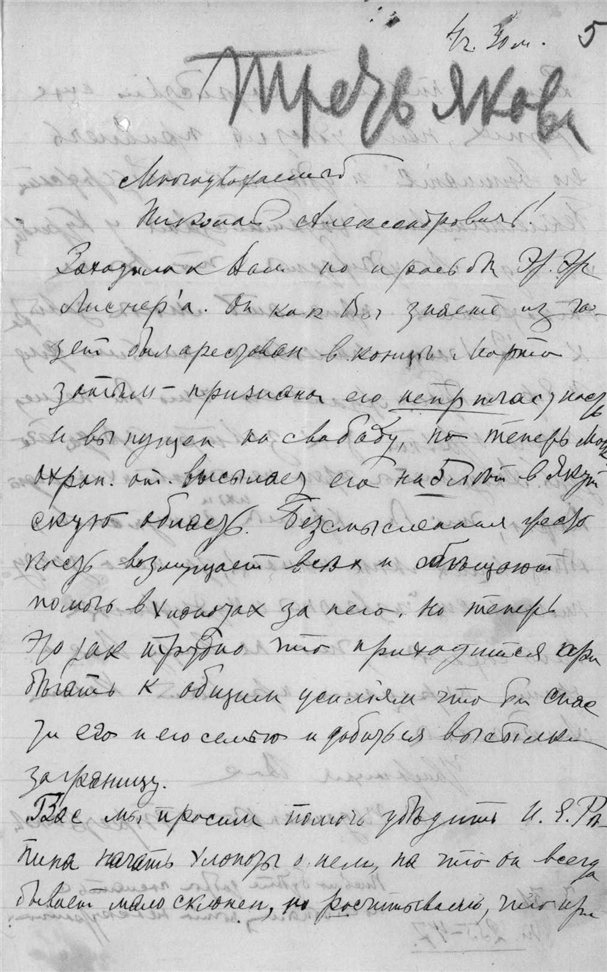 5
Третьякова
Многоуважаемый
Николай Александрович!
Заходила к Вам по просьбе Э. Э.
Лиснер'а. Он как Вы знаете из га-
зет был арестован в конце Марта
затем признана его непричастность
и выпущен на свободу, но теперь Моск.
охран. от. высылает его на 5 лет в Якут-
скую область. Безсмысленная жесто-
кость возмущает всех и обещают
помочь в хлопотах за него. Но теперь
это так трудно что приходится при
бегать к общим усильям что бы спас
ти его и его семью и добиться высылки
заграницу.
Вас мы просим помочь убедить И. Е. Ре-
пина начать хлопоты о нем, на что он всегда
бывает мало склонен, но рассчитываем, что при